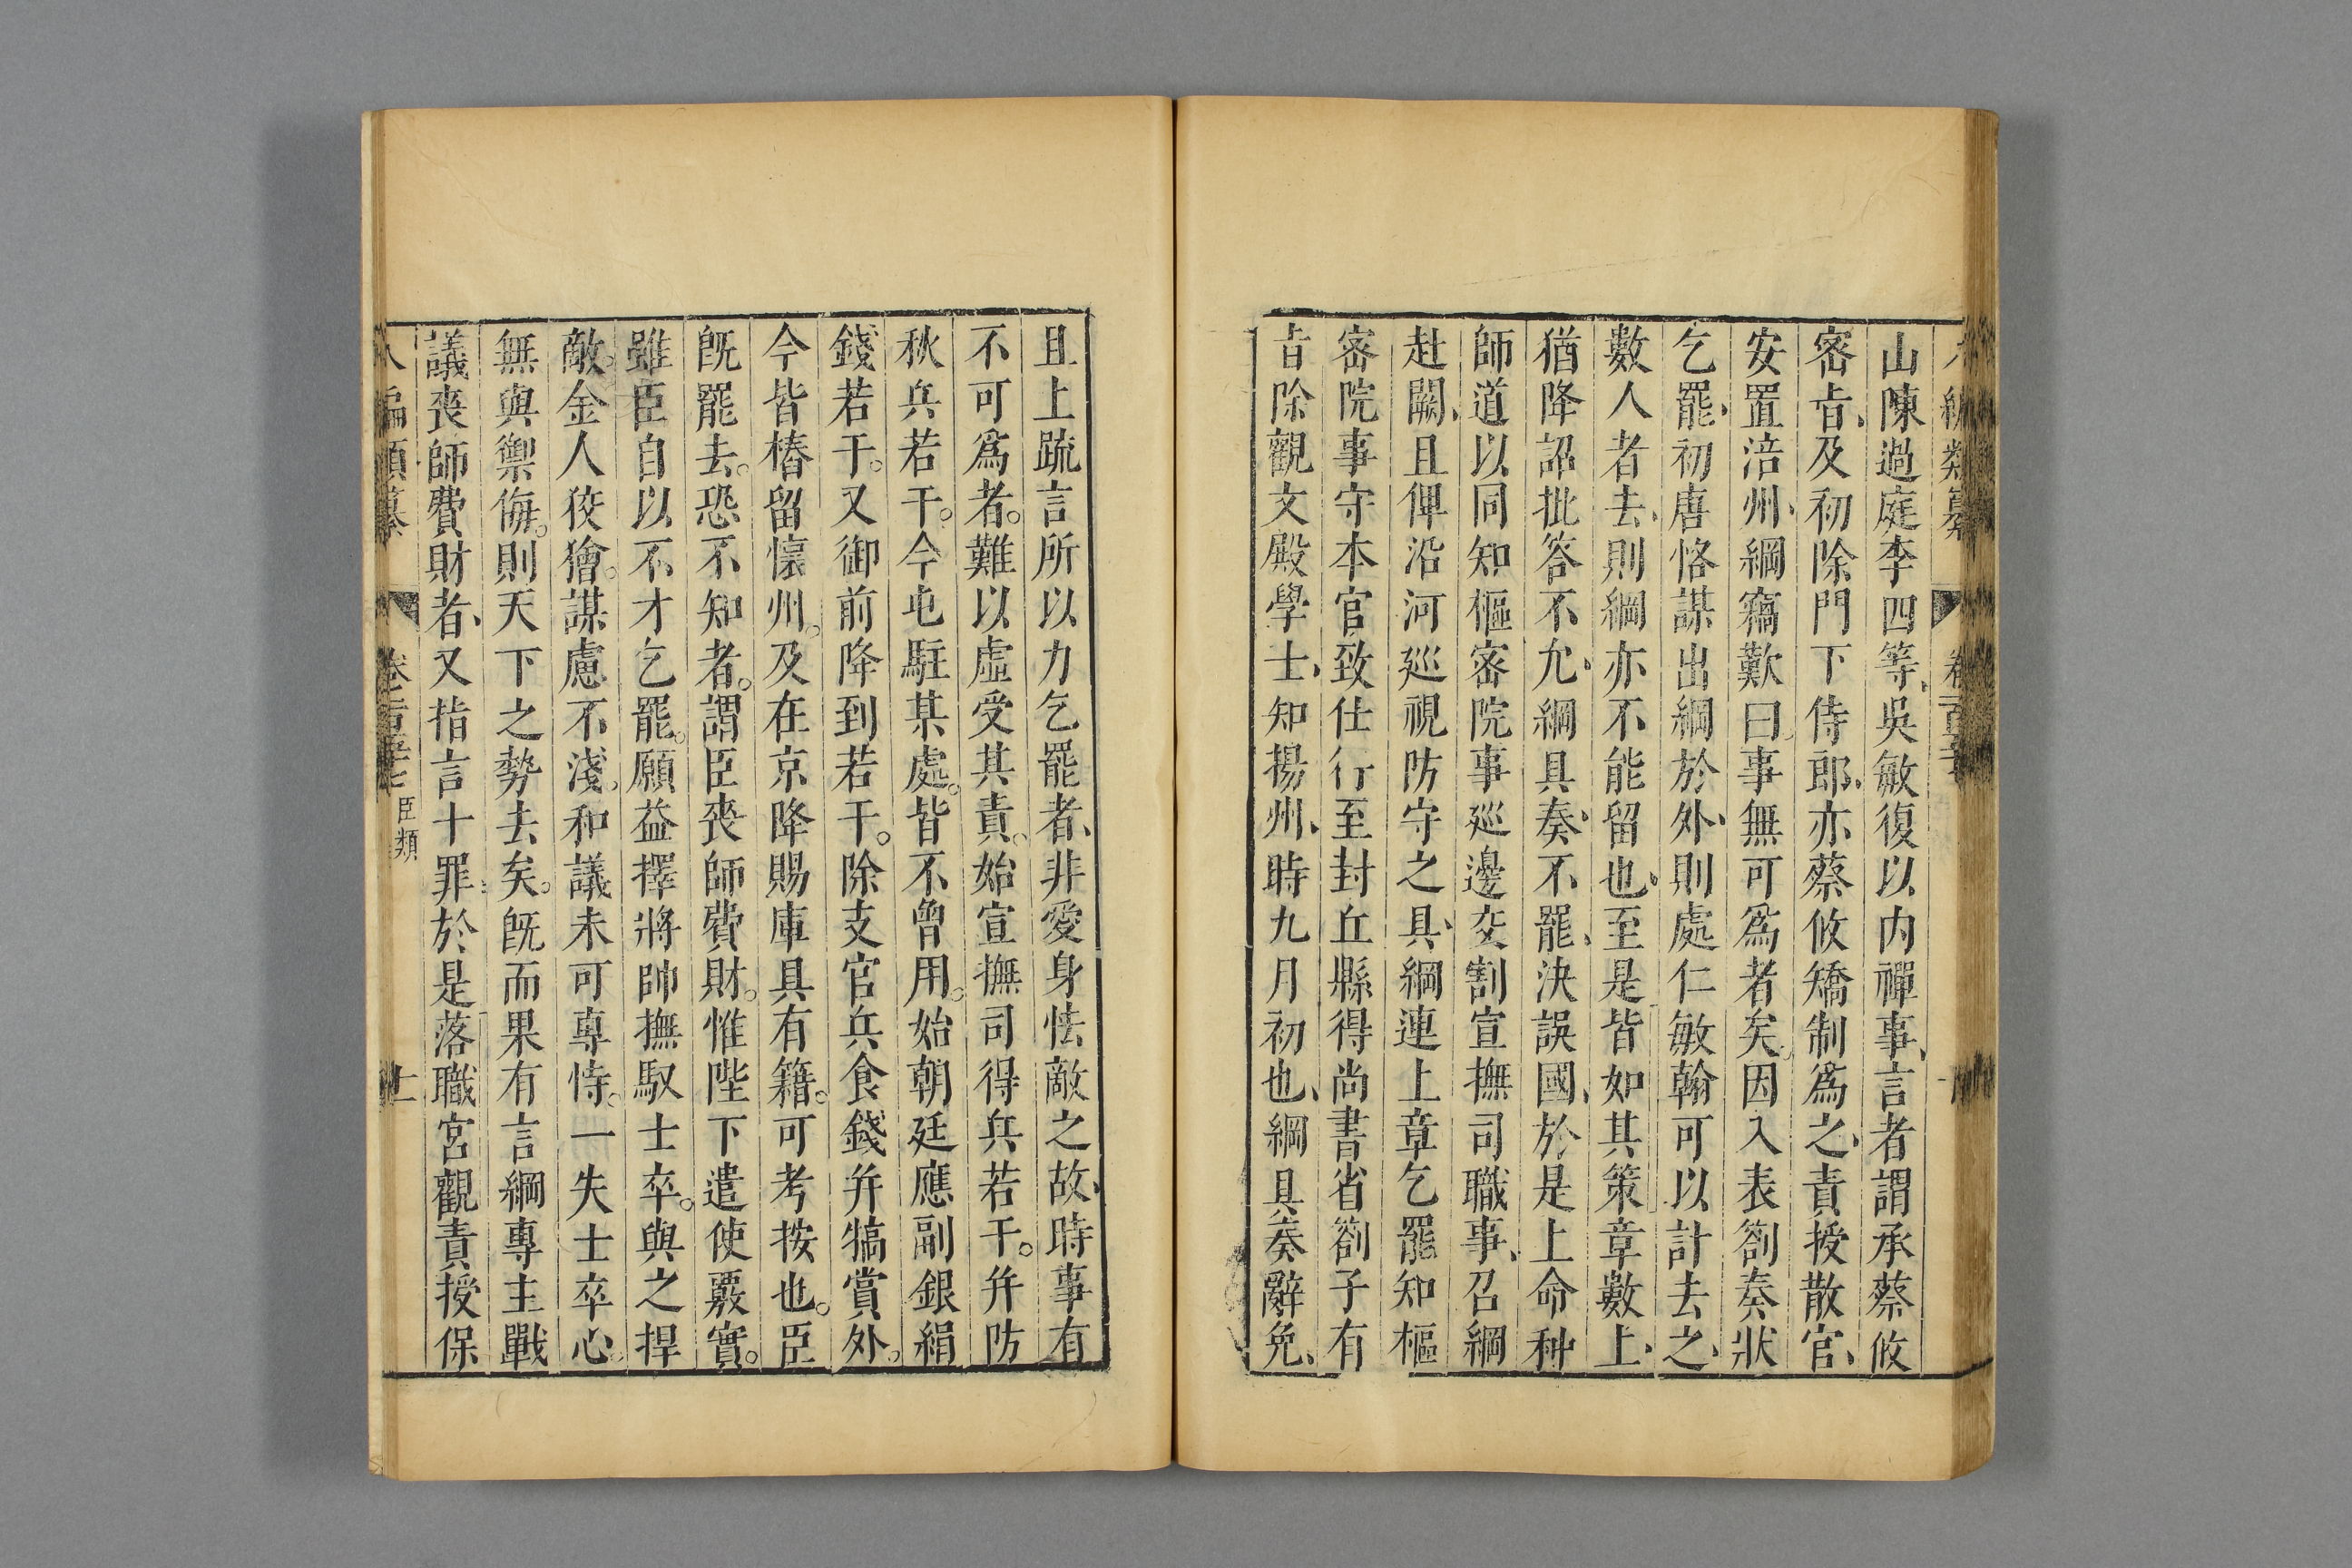 山陳過庭李四等吳敏復以内禪事言者謂承蔡攸
密㫖及初除門下侍郎亦蔡攸矯制爲之責授散官
安置涪州綱竊歎曰事無可爲者矣因入表劄奏狀
乞罷初唐恪謀出綱於外則處仁敏翰可以計去之
數人者去則綱亦不能留也至是皆如其策章數上
猶降詔批答不允綱具奏不罷決誤國於是上命种
師道以同知樞密院事巡邊交割宣撫司職事召綱
赴闕且俾沿河巡視防守之具綱連上章乞罷知樞
密院事守本官致仕行至封丘縣得尚書省劄子有
㫖除觀文殿學士知揚州時九月初也綱具奏辭免
且上疏言所以力乞罷者非愛身怯敵之故時事有
不可爲者。難以虛受其責。始宣撫司得兵若干。并防
秋兵若干。今屯駐某處。皆不曾用。始朝廷應副銀絹
錢若干。又御前降到若干。除支官兵食錢并犒賞外。
今皆樁留懷州。及在京降賜庫具有籍。可考按也。臣
旣罷去。恐不知者。謂臣喪師費財。惟陛下遣使覈實。
雖臣自以不才乞罷。願益擇將帥撫馭士卒。與之捍
敵。金人狡獪。謀慮不淺。和議未可專恃。一失士卒心。
無與禦侮。則天下之勢去矣。旣而果有言綱專主戰
議喪師費財者又指言十罪於是落職宮觀責授保
臣類